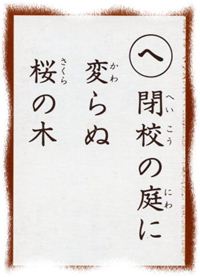 へ
閉校の庭に
へいこう にわ
変らぬ
かわ
桜の木
さくら